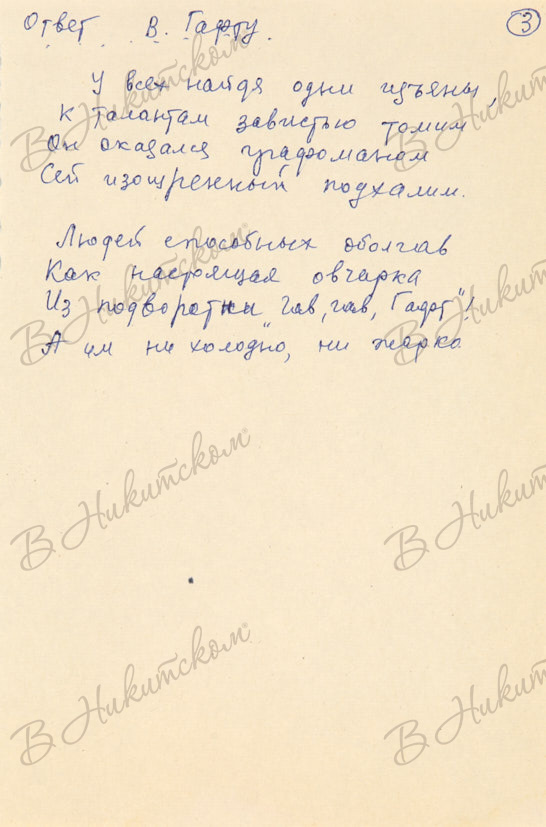 Ответ В. Гафту. 3
У всех найдя одни изъяны,
К талантам завистью томим
Он оказался графоманом
Сей изощренный подхалим.
Людей способных оболгав
Как настоящая овчарка
Из подворотни "гав, гав, Гафт"!
А им ни холодно, ни жарко.
В Никитском
В Никитском
В Никитском
В Никитском
В Никитском
В Никитском
В Никитском
В Никитском